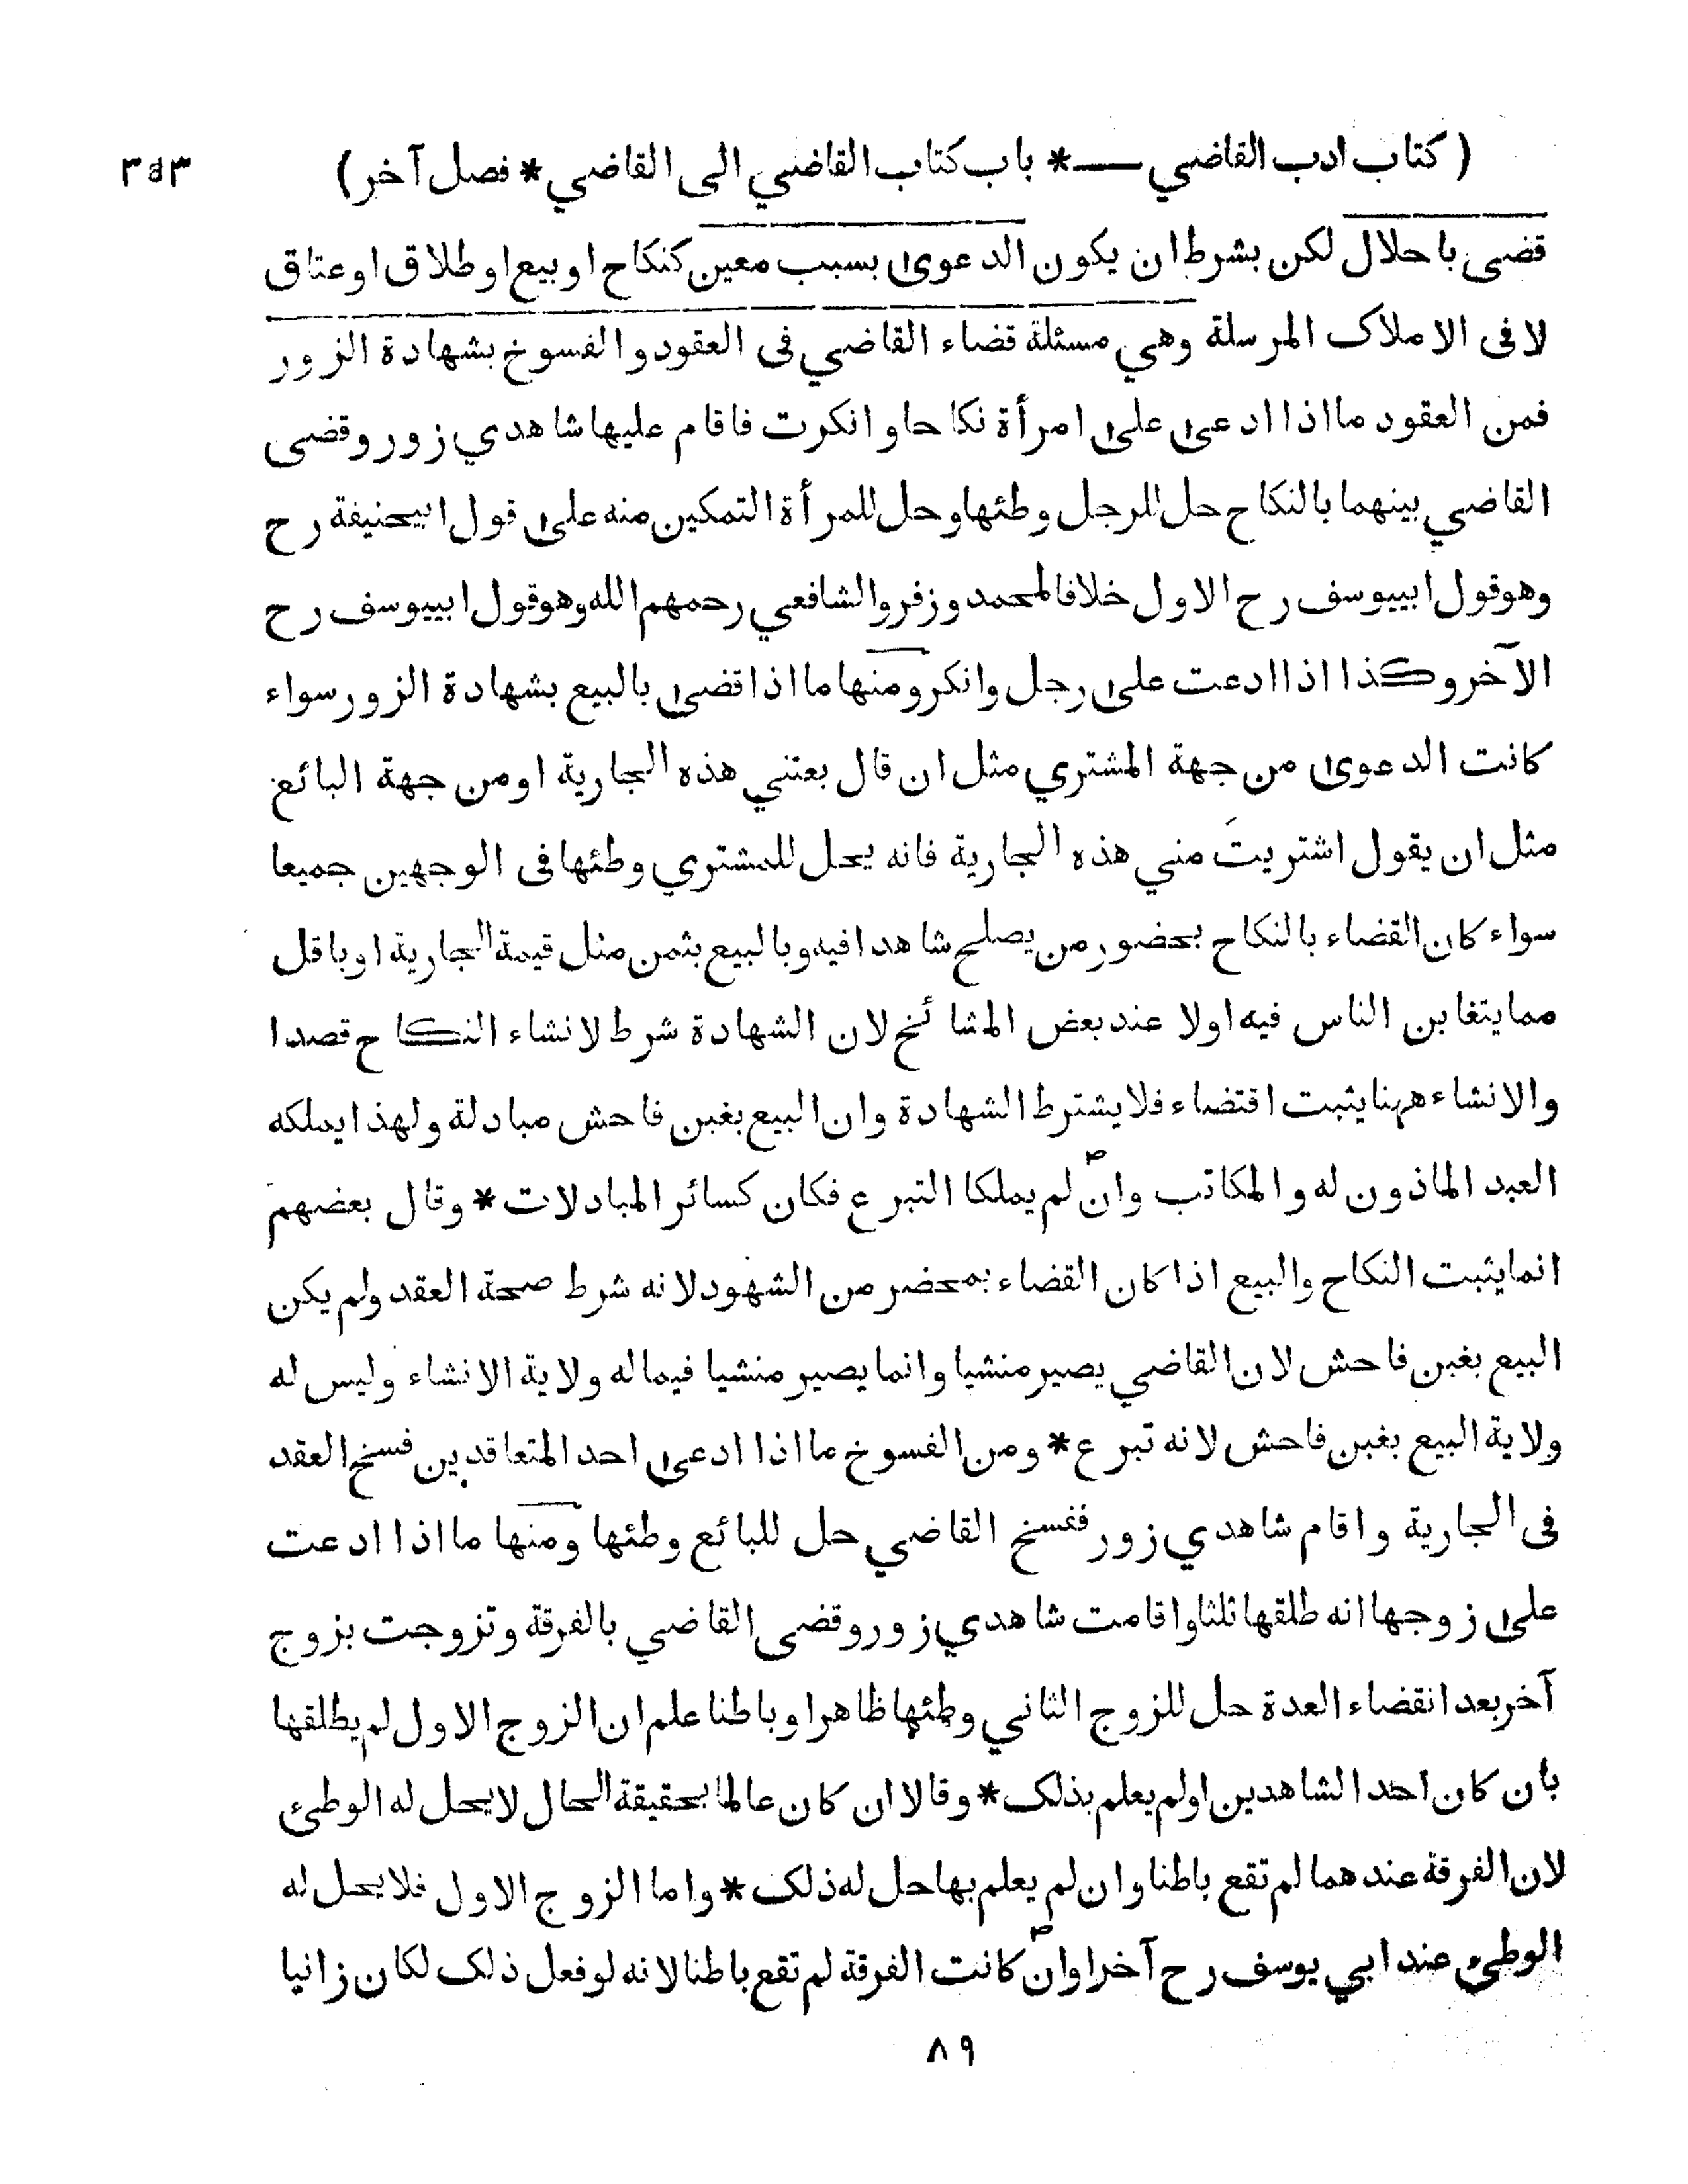 ( كتاب ادب القاضي —* باب كتاب القاضي الى القاضي * فصل آخر ) ٣٥٣
قضى باحلال لكن بشرط ان يكون الدعوى بسبب معين كنكاح او بيع او طلاق او عتاق
لا فى الاملاك المرسلة وهي مسئلة قضاء القاضي فى العقود والفسوخ بشهادة الزور
فمن العقود ما اذا ادعى على امرأة نكاحا وانكرت فاقام عليها شاهدي زور وقضى
القاضي بينهما بالنكاح حل للرجل وطئها وحل للمرأة التمكين منه على قول ابيحنيفة رح
وهو قول ابييوسف رح الاول خلافا لمحمد وزفر والشافعي رحمهم الله وهو قول ابييوسف رح
الآخر وكذا اذا ادعت على رجل وانكر ومنها ما اذا قضى بالبيع بشهادة الزور سواء
كانت الدعوى من جهة المشتري مثل ان قال بعتني هذه الجارية او من جهة البائع
مثل ان يقول اشتريتَ مني هذه الجارية فانه يحل للمشتري وطئها فى الوجهين جميعا
سواء كان القضاء بالنكاح بحضور من يصلح شاهدا فيه وبالبيع بثمن مثل قيمة الجارية او باقل
مما يتغابن الناس فيه اولا عند بعض المشائخ لان الشهادة شرط لانشاء النكاح قصدا
والانشاء ههنا يثبت اقتضاء فلا يشترط الشهادة وان البيع بغبن فاحش مبادلة ولهذا يملكه
العبد الماذون له والمكاتب وان لم يملكا التبرع فكان كسائر المبادلات * وقال بعضهم
انما يثبت النكاح والبيع اذا كان القضاء بمحضر من الشهود لانه شرط صحة العقد ولم يكن
البيع بغبن فاحش لان القاضي يصير منشيا وانما يصير منشيا فيما له ولاية الانشاء وليس له
ولاية البيع بغبن فاحش لانه تبرع * ومن الفسوخ ما اذا ادعى احد المتعاقدين فسخ العقد
فى الجارية واقام شاهدي زور ففسخ القاضي حل للبائع وطئها ومنها ما اذا ادعت
على زوجها انه طلقها ثلثا واقامت شاهدي زور وقضى القاضي بالفرقة وتزوجت بزوج
آخر بعد انقضاء العدة حل للزوج الثاني وطئها ظاهرا وباطنا علم ان الزوج الاول لم يطلقها
بأن كان احد الشاهدين او لم يعلم بذلك * وقالا ان كان عالما بحقيقة الحال لا يحل له الوطئ
لان الفرقة عندهما لم تقع باطنا وان لم يعلم بها حل له ذلك * واما الزوج الاول فلا يحل له
الوطئ عند ابي يوسف رح آخرا وان كانت الفرقة لم تقع باطنا لانه لو فعل ذلك لكان زانيا
٨٩